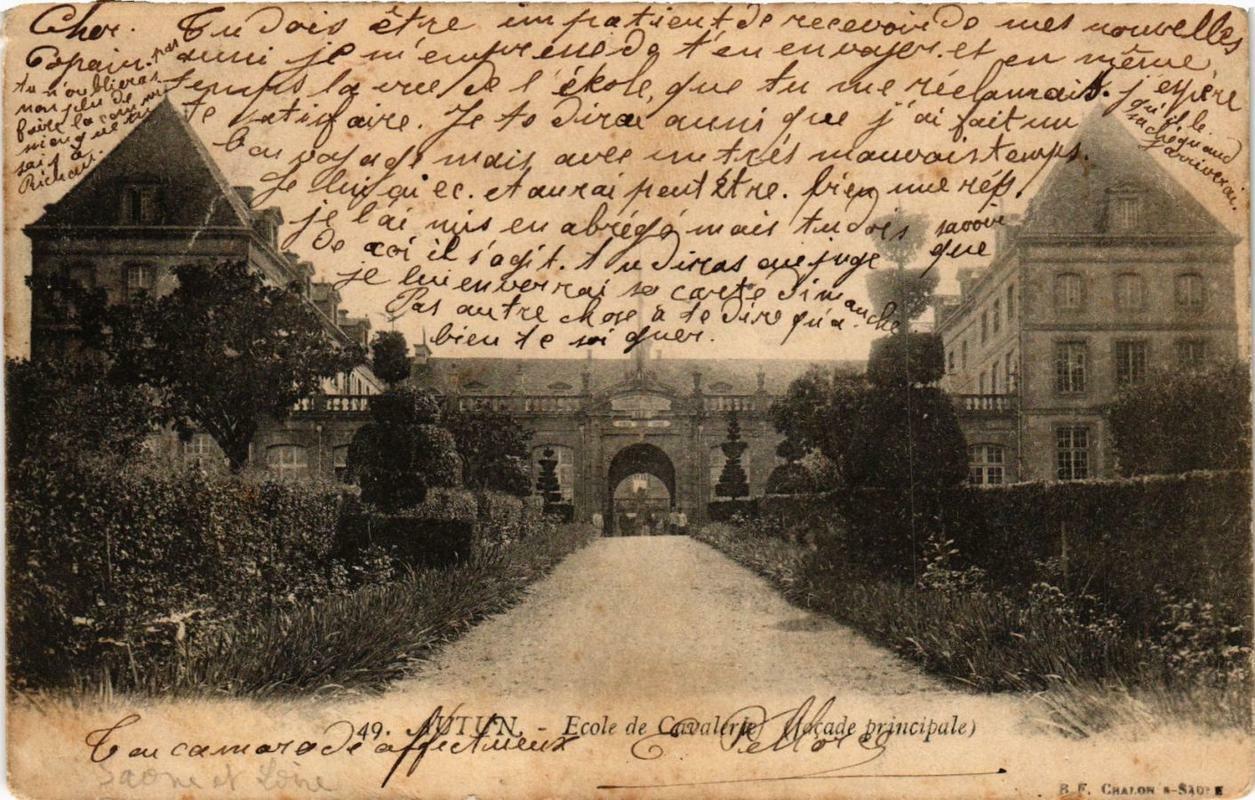 Cher. Tu dois être impatient de recevoir de mes nouvelles
Copain. aussi je m'emprene da t'en envoyer. et en même
temps la vue de l'ékole, que tu me réclamait. j'espère
te satisfaire. Je te dirai aussi que j'ai fait un
bon voyage mais avec un trés mauvais temps.
Je lui ai ec. et aurai peut être. bien une rép.
je l'ai mis en abrégé mais tu dois savoir
de coi il s'agit. Tu diras que
je lui enverrai sa carte dimanche
Pas autre chose à te dire qu'a
bien te soigner.
par
tu n'oublieras
non plus de
faire la com
sait à
Richard.
qu'il le.
sache quand
arriverai.
49. AUTUN. - Ecole de Cavalerie (façade principale)
Ton camarade affectueux
Saône et Loire
B. F. CHALON S-SAÔNE